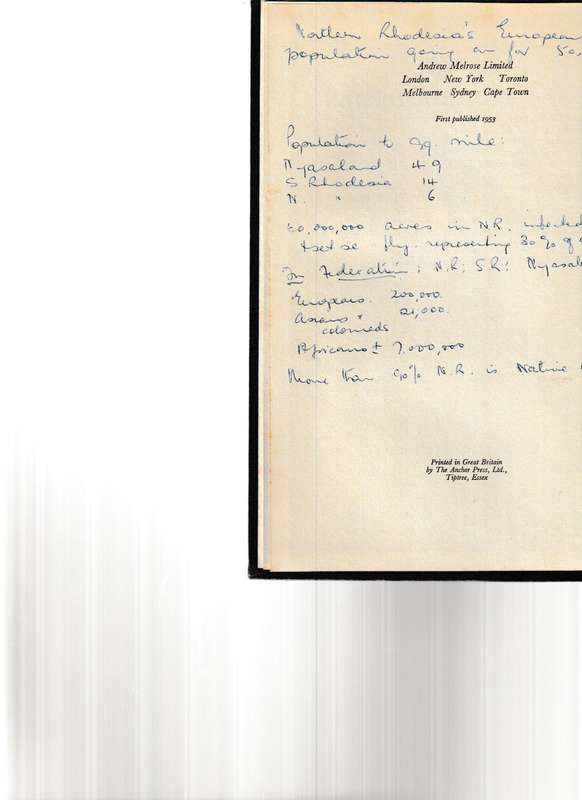 Northern Rhodesia's European
population going on for 50
Andrew Melrose Limited
London New York Toronto
Melbourne Sydney Cape Town
First published 1953
Population to sq. mile:
Nyasaland 49
S Rhodesia 14
N. " 6
60,000,000 acres in N.R. infected
tsetse fly representing 30% of
In Federation: N.R; S.R; Nyasal
Europeans. 200,000.
Asians &
21,000.
coloureds
Africans ± 7,000,000
More than 90% N.R. is Native
Printed in Great Britain
by The Anchor Press, Ltd.,
Tiptree, Essex